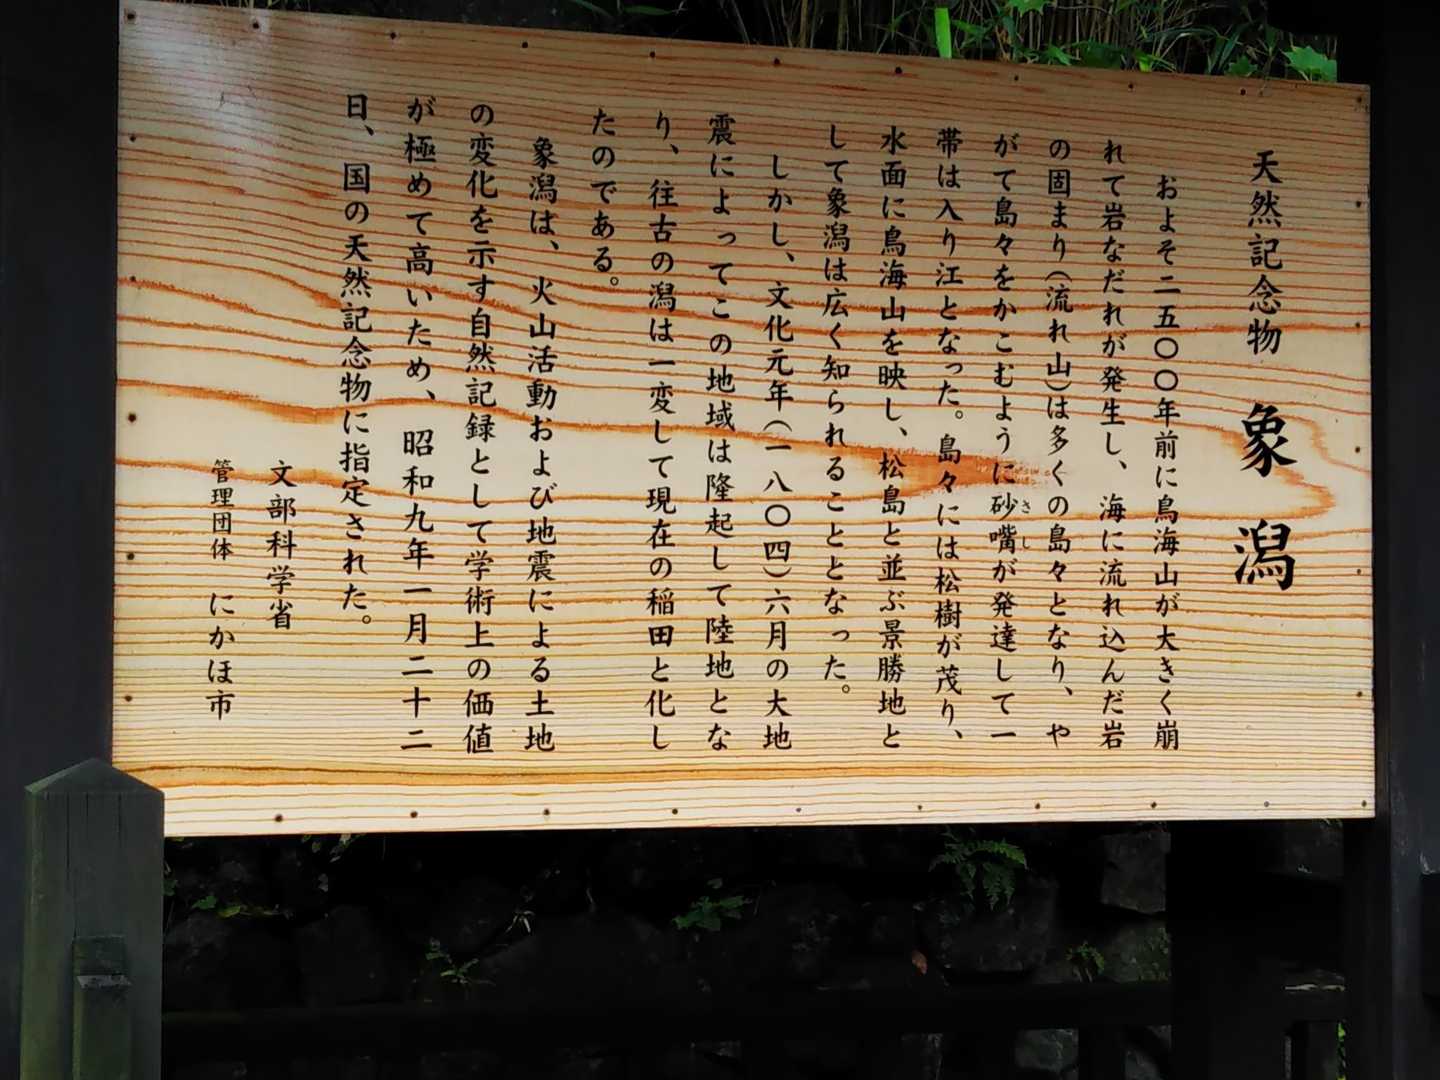 天然記念物 象潟
およそ二五〇〇年前に鳥海山が大きく崩
れて岩なだれが発生し、海に流れ込んだ岩
の固まり(流れ山)は多くの島々となり、や
がて島々をかこむように砂嘴が発達して一
さし
帯は入り江となった。島々には松樹が茂り、
水面に鳥海山を映し、松島と並ぶ景勝地と
して象潟は広く知られることとなった。
しかし、文化元年(一八〇四)六月の大地
震によってこの地域は隆起して陸地とな
り、往古の潟は一変して現在の稲田と化し
たのである。
象潟は、火山活動および地震による土地
の変化を示す自然記録として学術上の価値
が極めて高いため、昭和九年一月二十二
日、国の天然記念物に指定された。
文部科学省
管理団体 にかほ市